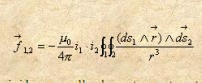 $\vec{f}_{12} = -\frac{\mu_0}{4\pi} i_1 \cdot i_2 \oint_1 \oint_2 \frac{(d\vec{s}_1 \wedge \vec{r}) \wedge d\vec{s}_2}{r^3}$